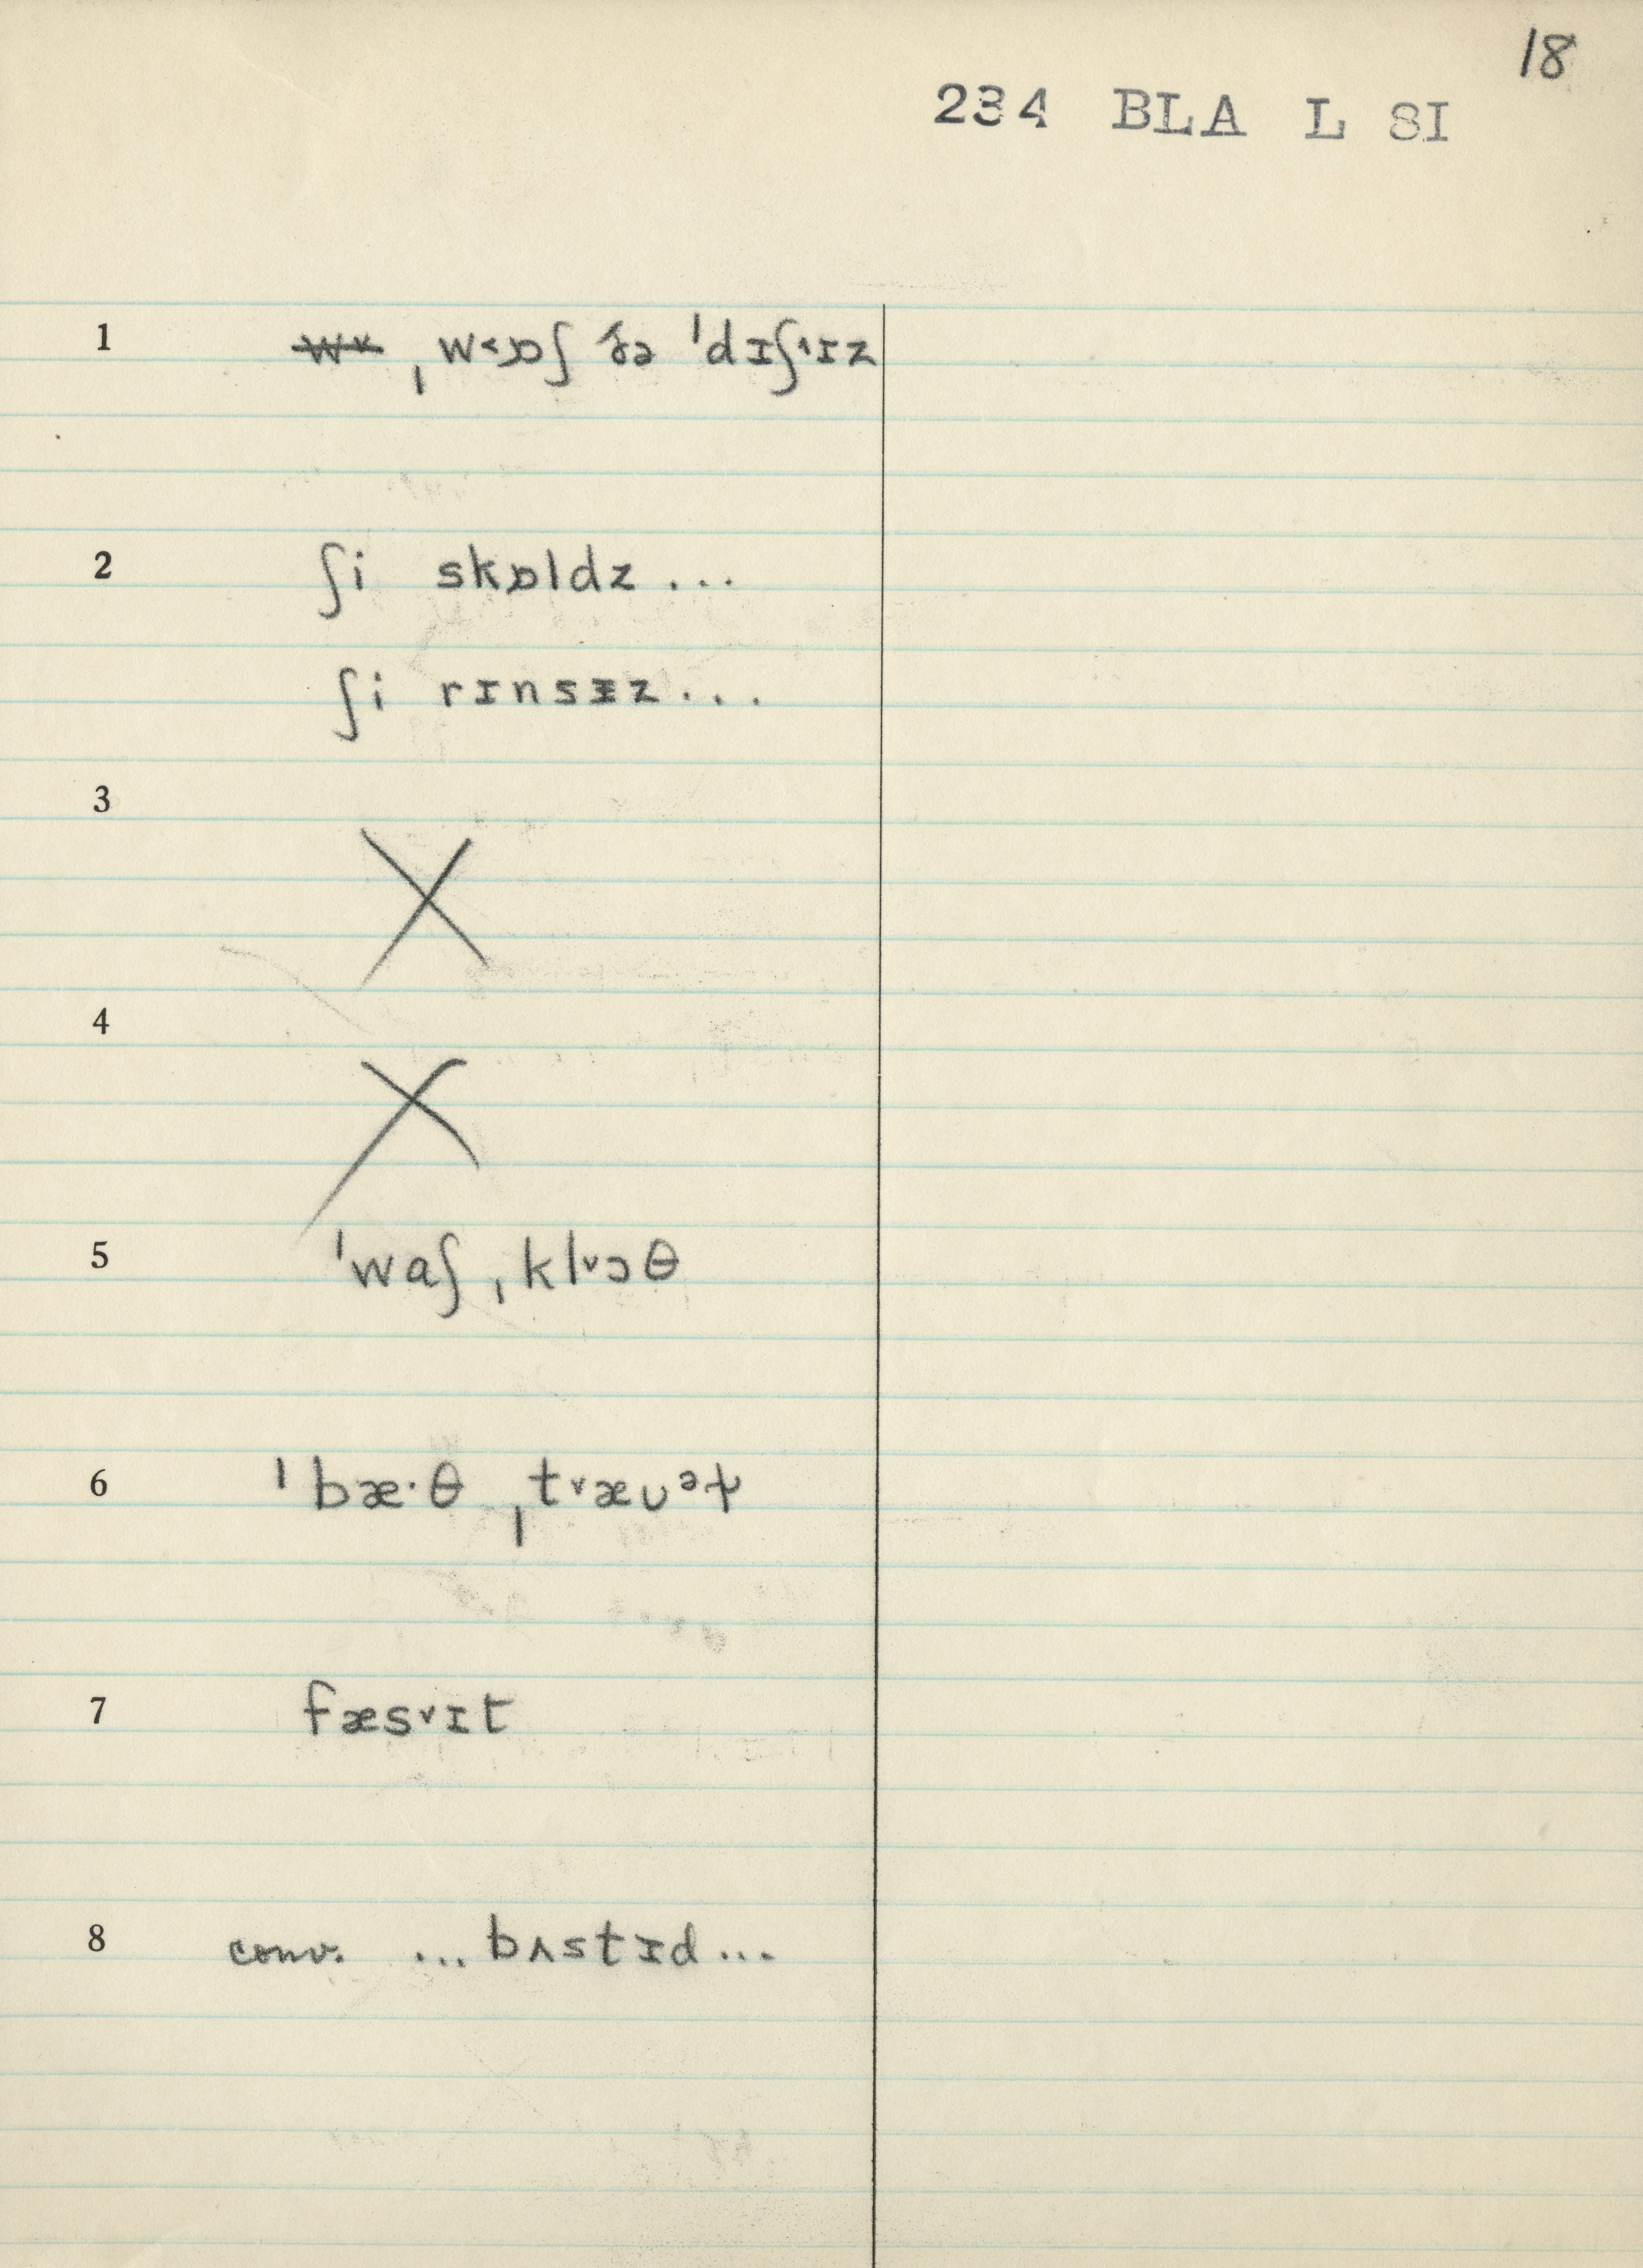 18
234 BLA L SI
1 ˌw˂ɒʃ ðə ˈdɪʃ˄ɪz
2 ʃi skɒldz ...
ʃi rɪnsɪz ...
3
X
4
X
5 ˈwaʃ ˌkl˅ɔθ
6 ˈbæ·θ ˌt˅æᴜᵊɫ
7 fæs˅ɪt
8 conv. ... bʌstɪd ...